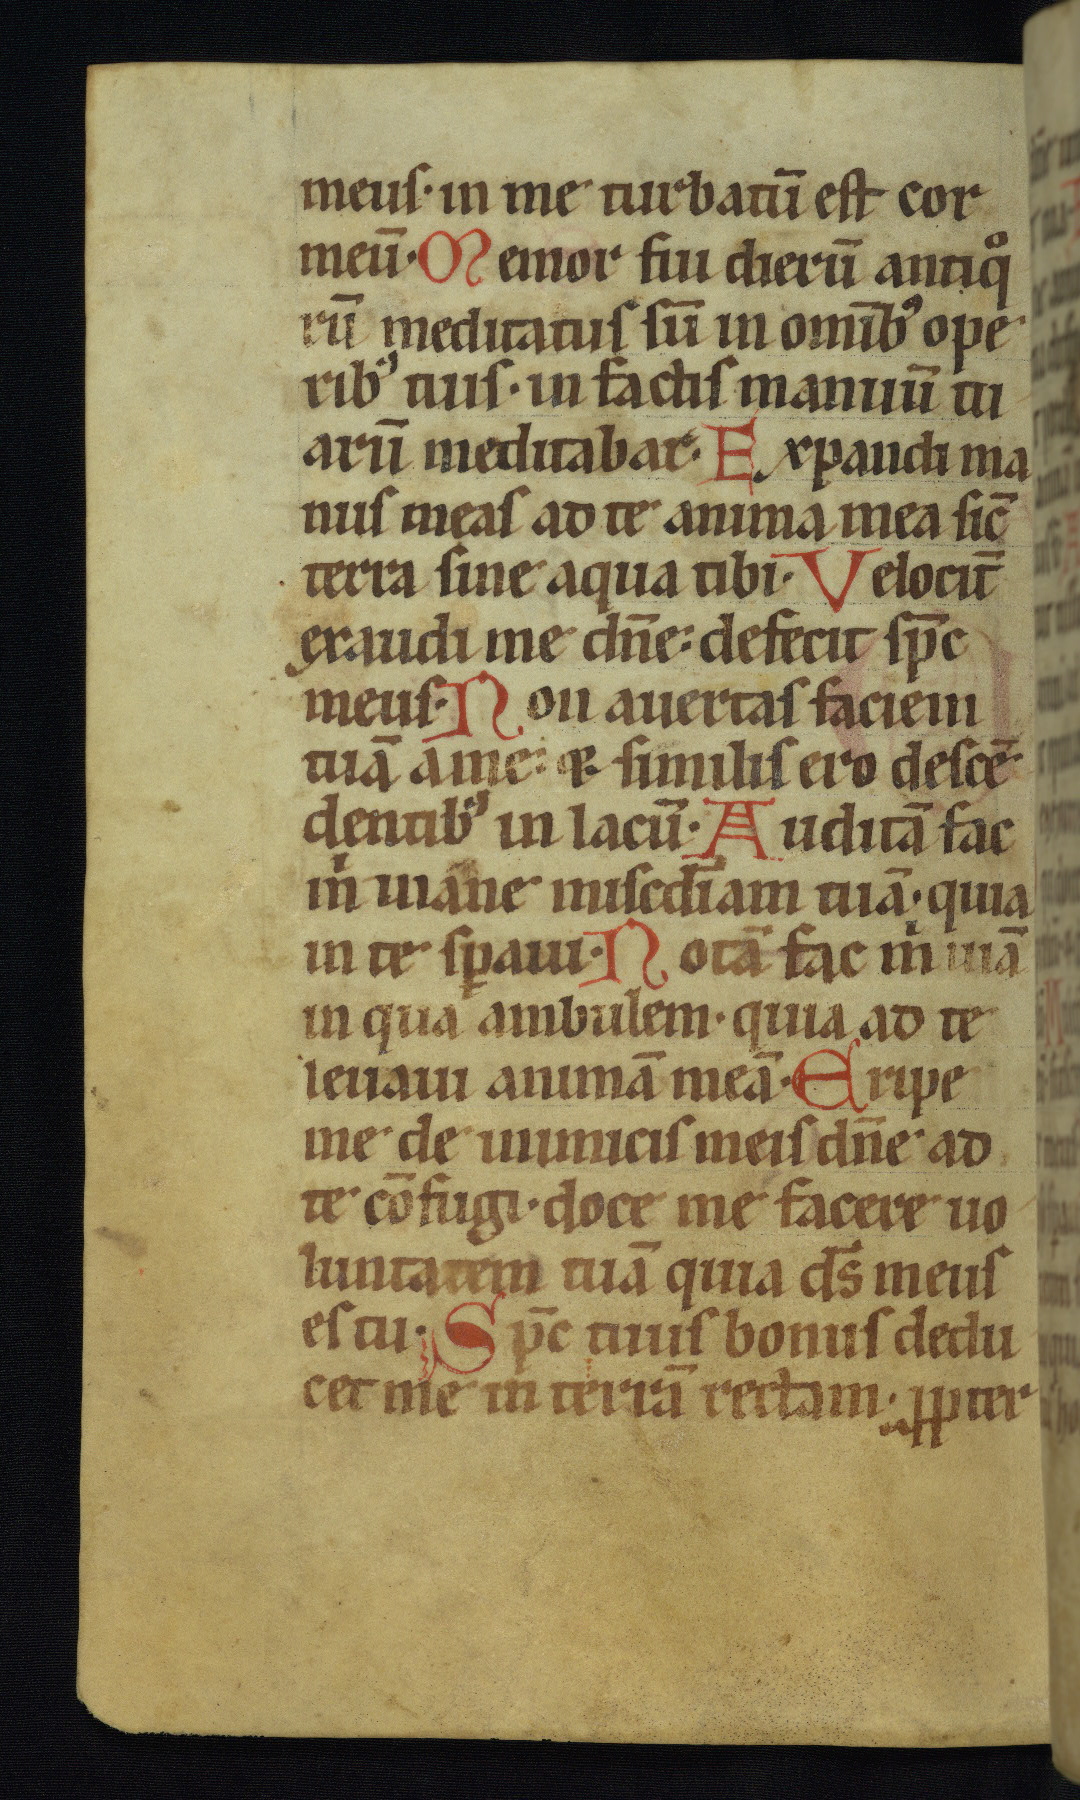 meus· in me turbatū est cor
meū· Memor fui dierū antiqͦ
rū meditatus sū in om̄ibꝰ ope
ribꝰ tuis· in factis manuū tu
arū meditabar· Expandi ma
nus meas ad te anima mea sic̄
terra sine aqua tibi· Velocit̄
exaudi me dn̄e: defecit sp̄c
meus· Non auertas faciem
tuā a me: ⁊ similis ero descē
dentibꝰ in lacū· Auditā fac
m̍ mane misc̄diam tuā· quia
in te sꝑaui· Notā fac m̍ uiā
in qua ambulem· quia ad te
leuaui animā meā· Eripe
me de inimicis meis dn̄e ad
te cōfugi· doce me facere uo
luntatem tuā quia ds̄ meus
es tu· Sp̄c tuus bonus dedu
cet me in terrā rectam· ꝓpter